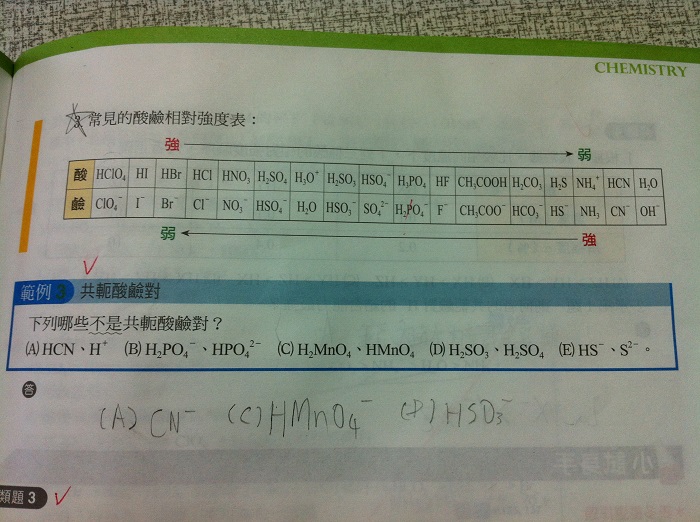 CHEMISTRY
3. 常見的酸鹼相對強度表：
強 弱
酸 HClO₄ HI HBr HCl HNO₃ H₂SO₄ H₃O⁺ H₂SO₃ HSO₄⁻ H₃PO₄ HF CH₃COOH H₂CO₃ H₂S NH₄⁺ HCN H₂O
鹼 ClO₄⁻ I⁻ Br⁻ Cl⁻ NO₃⁻ HSO₄⁻ H₂O HSO₃⁻ SO₄²⁻ H₂PO₄⁻ F⁻ CH₃COO⁻ HCO₃⁻ HS⁻ NH₃ CN⁻ OH⁻
弱 強
範例 3 共軛酸鹼對
下列哪些不是共軛酸鹼對？
(A) HCN、H⁺ (B) H₂PO₄⁻、HPO₄²⁻ (C) H₂MnO₄、HMnO₄ (D) H₂SO₃、H₂SO₄ (E) HS⁻、S²⁻。
答
(A) CN⁻ (C) HMnO₄⁻ (D) HSO₃⁻
類題 3